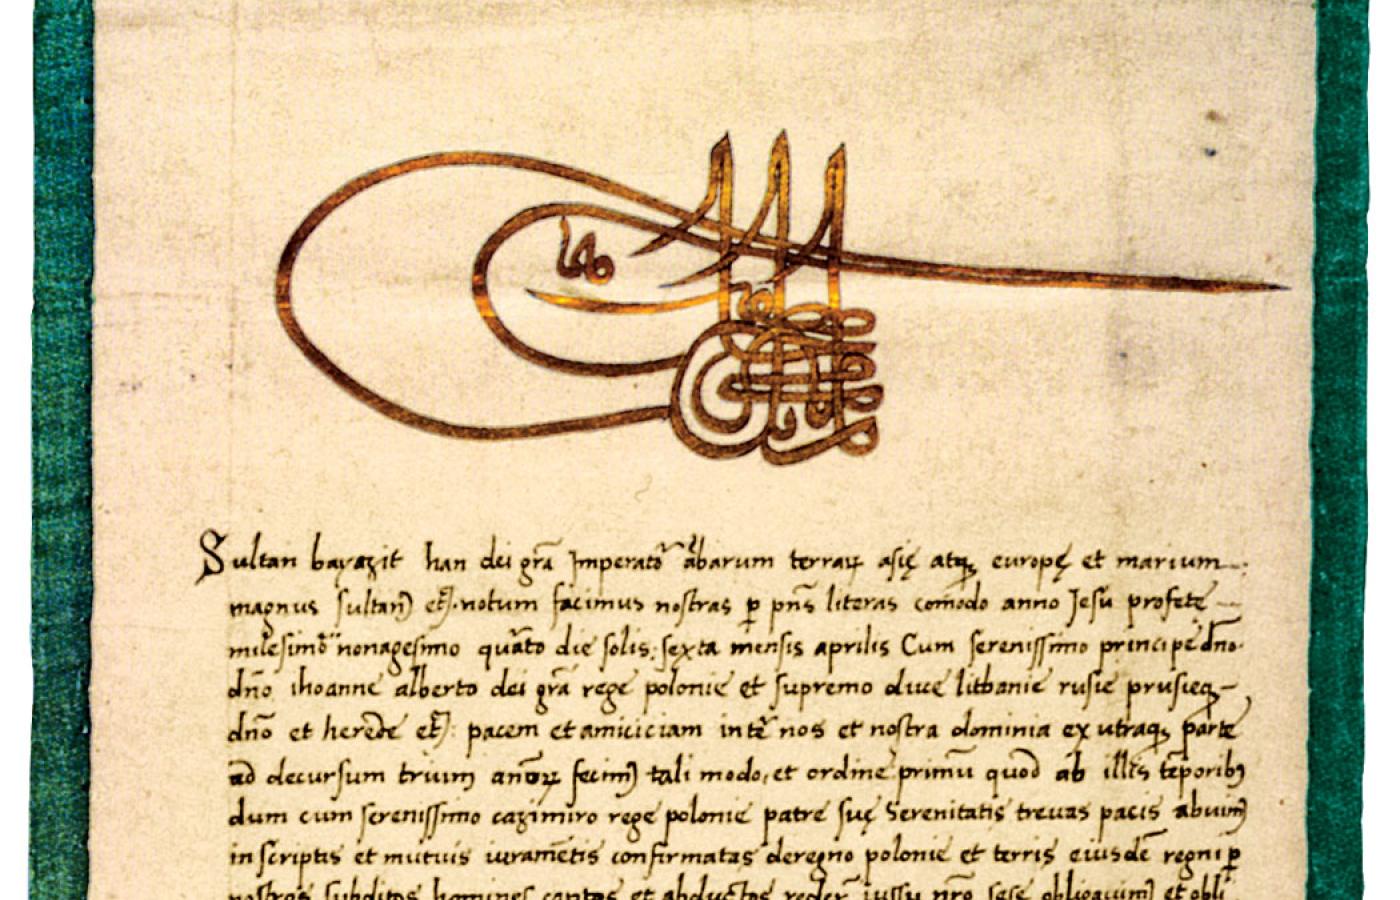 Sultan bayazit han dei gr̃a Imperatoʳ ãbarum terraꝝ asię atqꝫ europę et marium
magnus sultanꝰ etꝯ. notum facimus nostras ꝑ pñs literas com̃odo anno Jesu profete
milesimo nonagesimo quãto die solis: sexta mensis aprilis Cum serenissimo principe dño.
dño ihoanne alberto dei gr̃a rege polonie et supremo duce litbanie rusie prusieqꝫ
dño et herede etꝯ: pacem et amiciciam inte͂ nos et nostra dominia ex utraqꝫ parte
ad decursum trium anoꝝ fecimꝰ tali modo, et ordine primũ quod ab illis tẽporibꝫ
dum cum serenissimo cazimiro rege polonie patre suę serenitatis treuas pacis abuimꝰ
in scriptis et mutuis iuramẽtis confirmatas de regno polonie et terris eiusdẽ regni ꝑ
nostros subditos homines captos et abductos redder̃ iussu nr̃o sese obligauimꝰ et obli